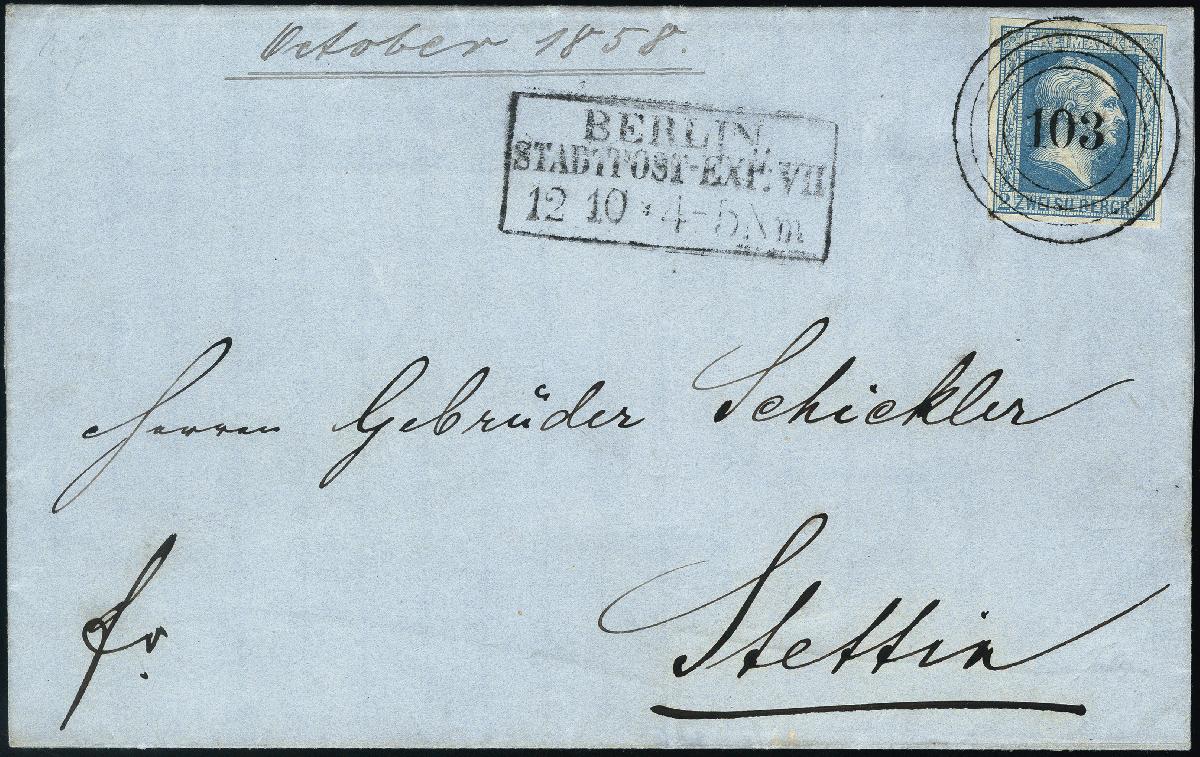 October 1858.
BERLIN.
STADTPOST-EXP: VII
12 10 * 4-5 Nm
FREIMARKE
103
2 ZWEI SILBERGR. 2
Herren Gebrüder Schickler
fr.
Stettin